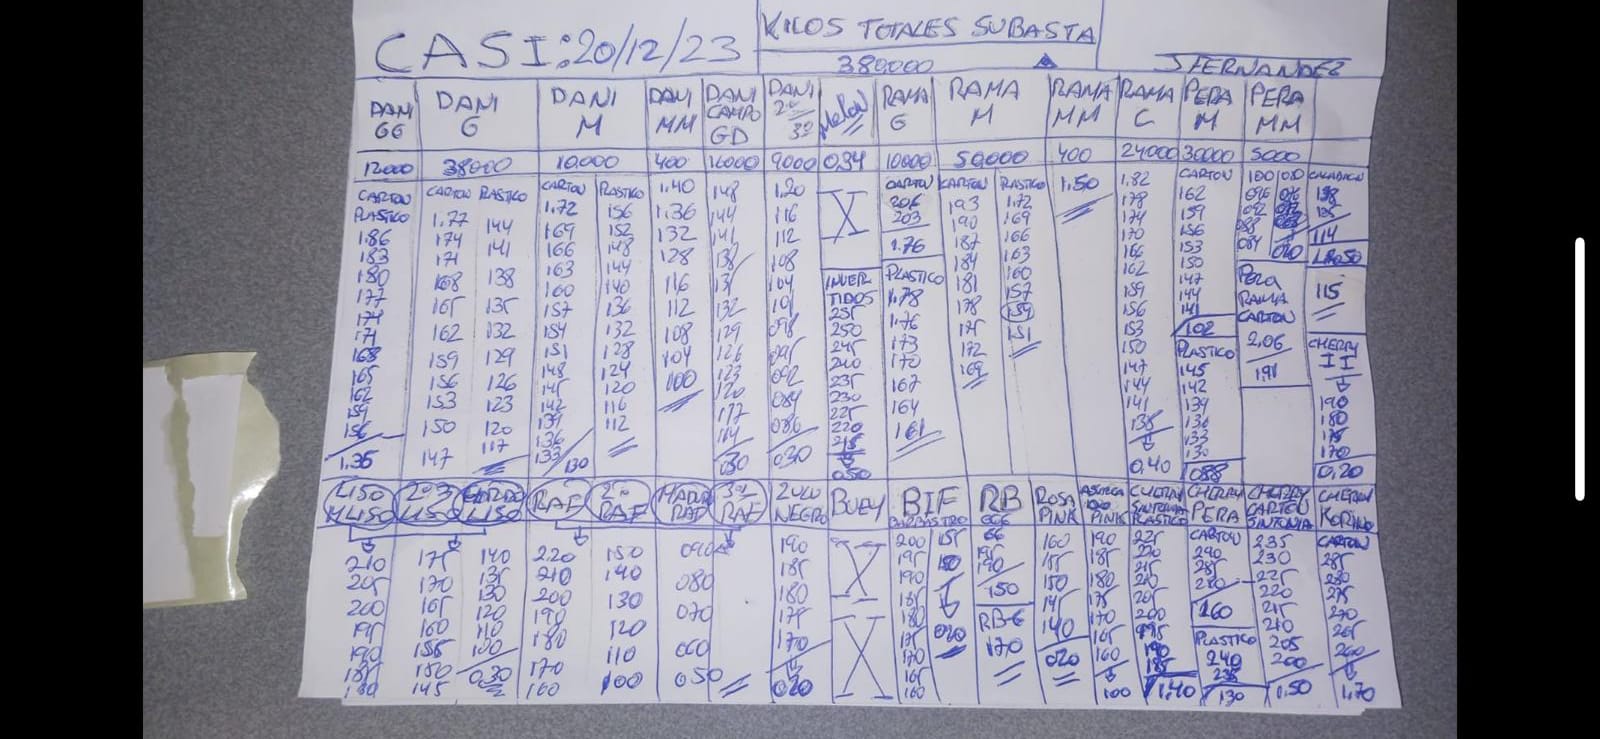 CASI: 20/12/23
KILOS TOTALES SUBASTA
380,000
J FERNANDEZ
DANI GG
DANI G
DANI M
DANI MM
DANI CAMPO GD
DANI 2ª
Melon
RAMA G
RAMA M
RAMA MM
RAMA C
PERA M
PERA MM
12000 38000 10.000 400 16000 9000 0,34 10000 50,000 400 24000 30000 5000
CARTON
PLASTICO
1.86
183
180
177
174
171
168
165
162
159
156
1.35
CARTON
1.77
174
171
168
165
162
159
156
153
150
147
PLASTICO
144
141
138
135
132
129
126
123
120
117
CARTON
1.72
169
166
163
160
157
154
151
148
145
142
139
136
133
130
PLASTICO
156
152
148
144
140
136
132
128
124
120
116
112
1.40
1.36
132
128
116
112
108
104
100
148
144
141
138
132
129
126
123
120
030
1.20
116
112
108
104
101
098
095
092
086
030
X
INVER
TIDOS
255
250
245
240
235
230
225
220
215
0,50
CARTON
206
203
1.76
PLASTICO
1.78
1.76
173
170
167
164
161
CARTON
193
190
187
184
181
178
175
172
169
PLASTICO
1.72
169
166
163
160
157
154
151
1.50
1.82
178
174
170
166
162
159
156
153
150
147
144
141
138
0,40
CARTON
162
159
156
153
150
147
144
141
102
PLASTICO
145
142
139
136
133
130
088
100
096
092
088
084
PERA
RAMA
CARTON
2.06
1.91
114
115
CHERRY
II
190
180
175
170
0,20
LISO
M LISO
2ª 3ª
LISO
GORDO
LISO
RAF
2ª
RAF
MADUR
RAF
3ª
RAF
ZULU
NEGRO
BUEY
BIF
BARBASTRO
RB
GGG
ROSA
PINK
PINK
CHERRY
SINTONIA
PLASTICO
CHERRY
PERA
CHERRY
CARTON
SINTONIA
CHERRY
KORINO
210
205
200
195
190
185
180
175
170
165
160
155
150
145
140
135
130
120
110
100
0,30
220
210
200
190
180
170
160
150
140
130
120
110
100
090
080
070
060
050
190
185
180
175
170
020
X
X
200
195
190
185
180
175
170
165
160
155
150
020
GG
195
190
150
RB-G
170
160
155
150
145
140
020
190
185
180
175
170
165
160
100
225
220
215
210
205
200
195
190
185
1,40
CARTON
290
285
280
160
PLASTICO
240
235
130
235
230
225
220
215
210
205
200
1,50
CARTON
285
280
275
270
265
260
1,70